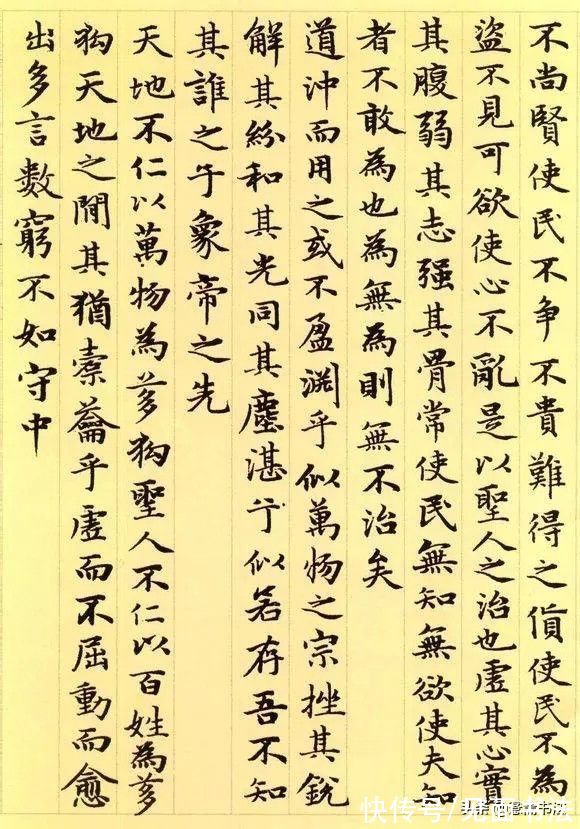 不尚賢使民不争不貴難得之貨使民不為
盜不見可欲使心不亂是以聖人之治也虛其心實
其腹弱其志强其骨常使民無知無欲使夫知
者不敢為也為無為則無不治矣
道沖而用之或不盈淵乎似萬物之宗挫其銳
解其紛和其光同其塵湛乎似若存吾不知
其誰之子象帝之先
天地不仁以萬物為芻狗聖人不仁以百姓為芻
狗天地之間其猶橐籥乎虛而不屈動而愈
出多言數窮不如守中
快传号/